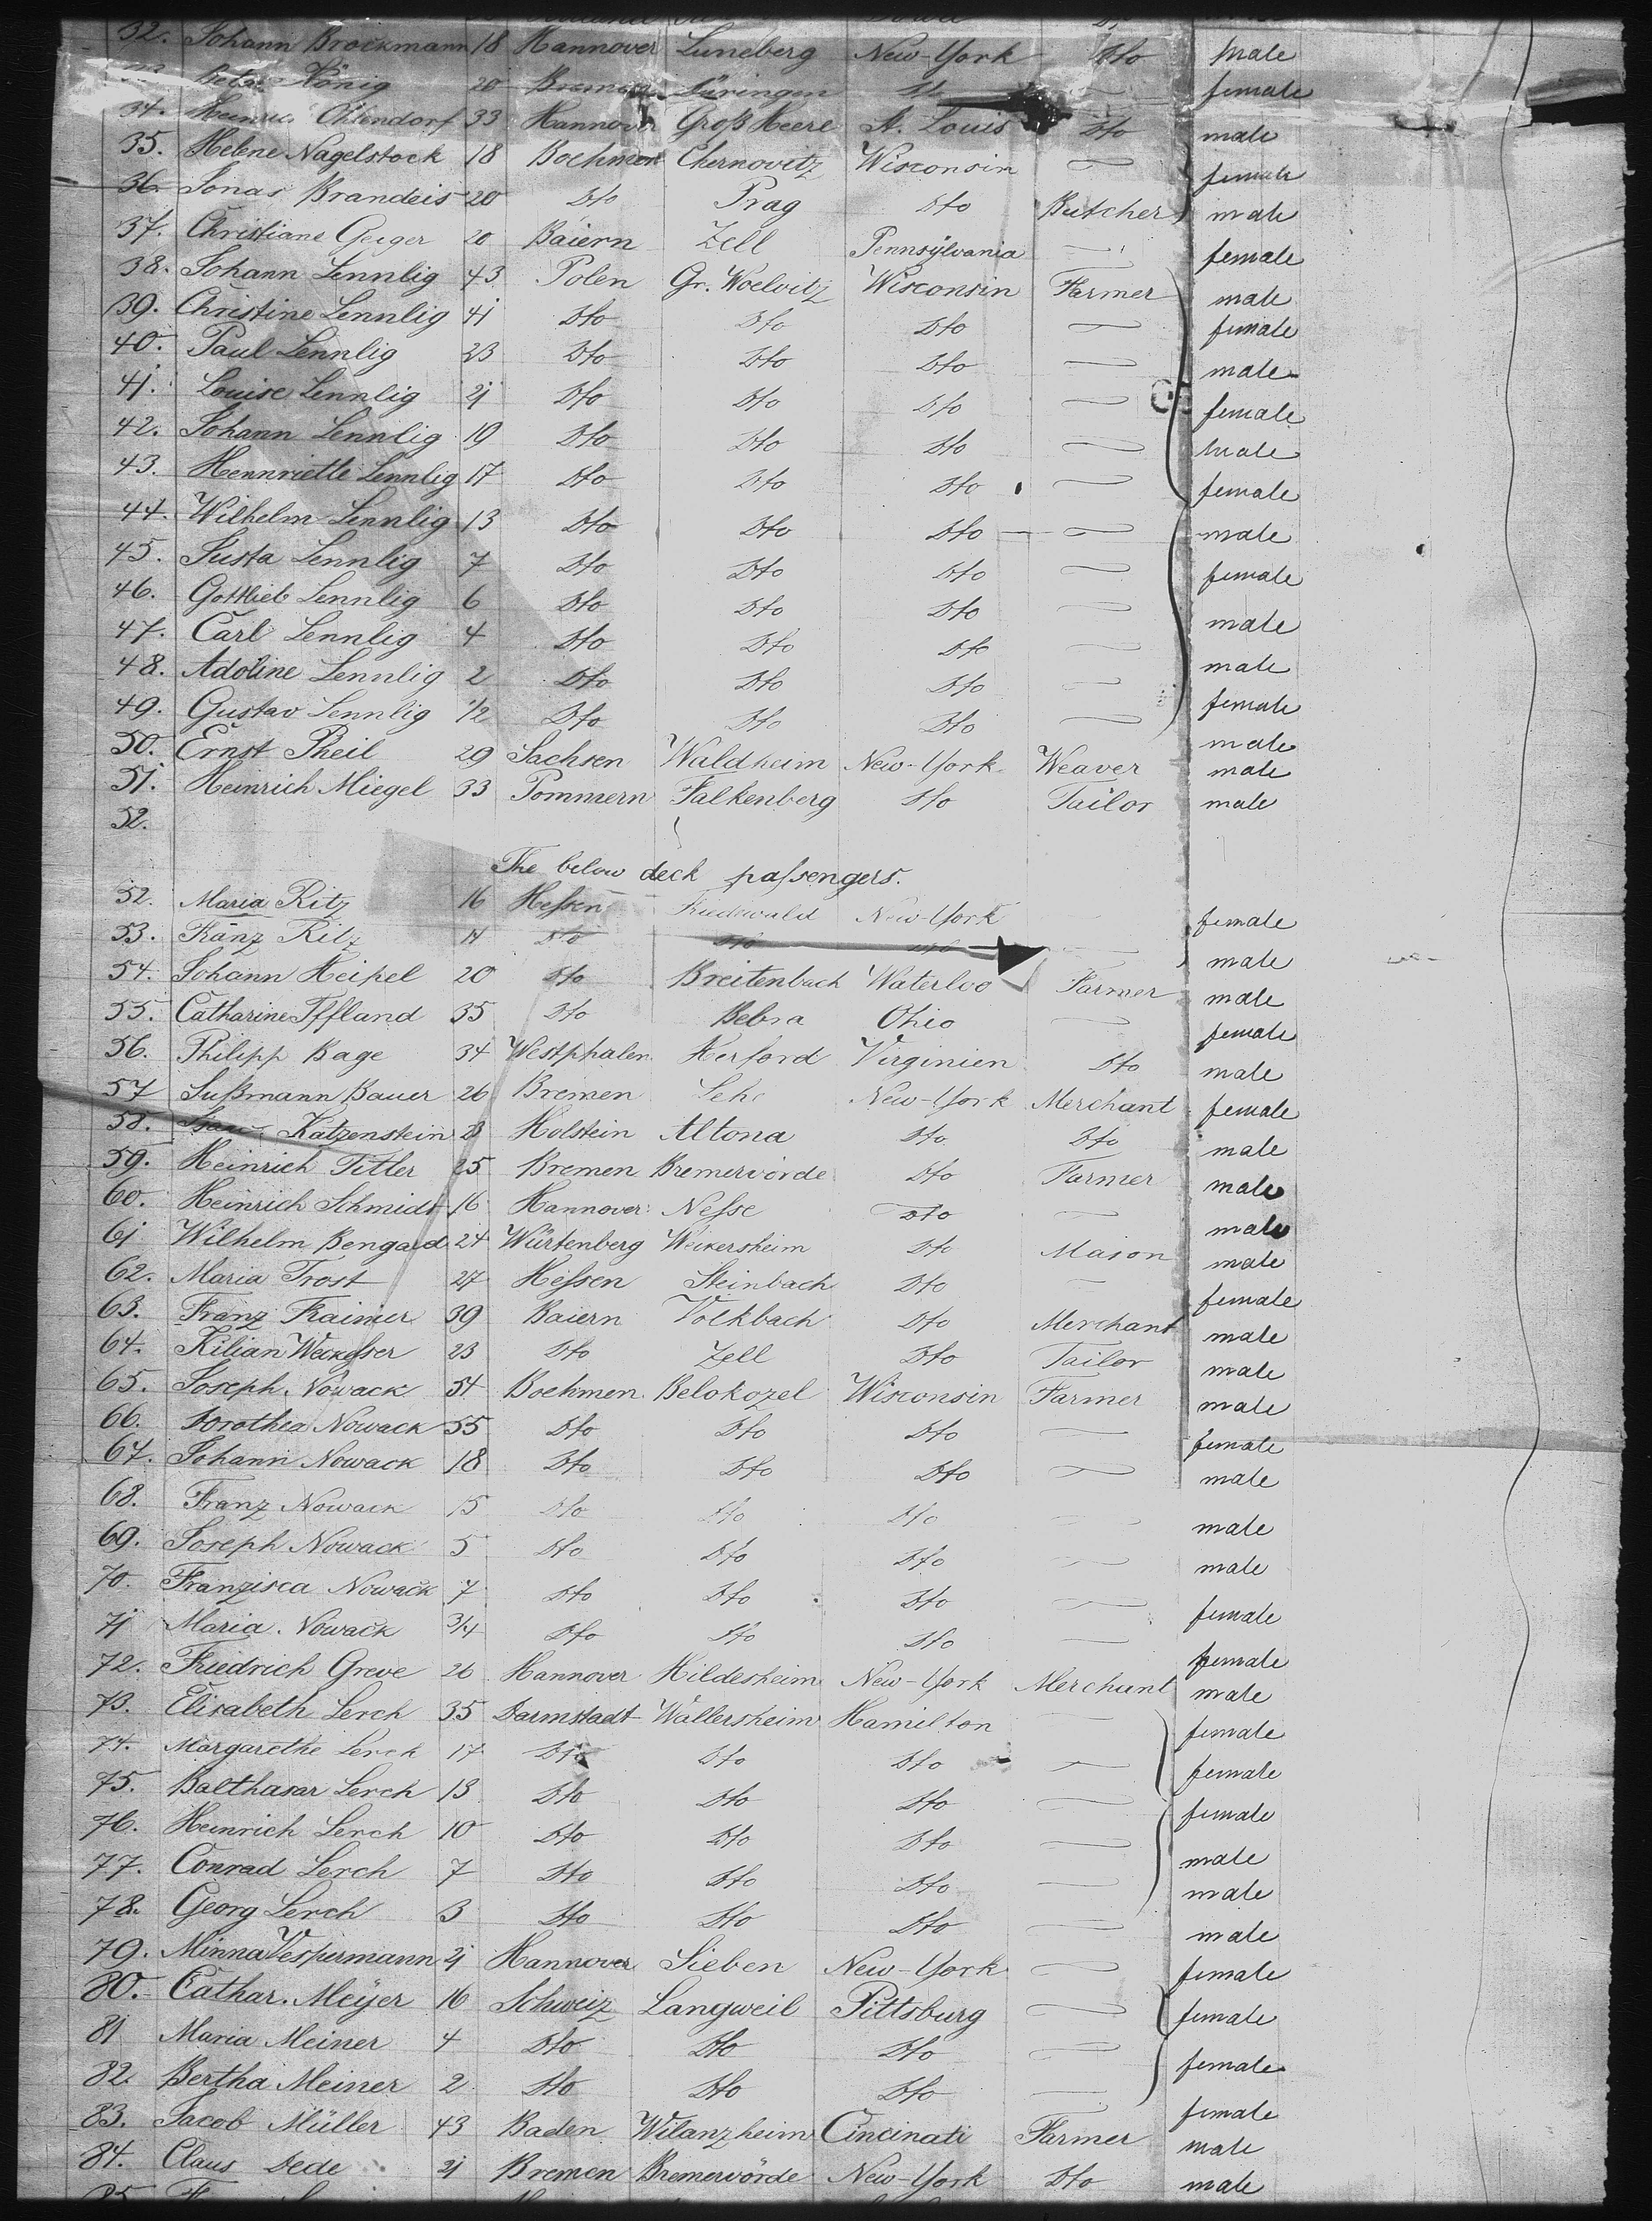 32. Johann Brockmann 18 Hannover Luneberg New-York Dto male
König 20 Bremen female
34. Ohlendorf 33 Hannover Groß Heere St. Louis Dto male
35. Helene Nagelstock 18 Boehmen Chernovitz Wisconsin — female
36. Jonas Brandeis 20 Dto Prag Dto Butcher male
37. Christiane Geiger 20 Baiern Zell Pennsylvania — female
38. Johann Lennlig 43 Polen Gr. Woelvitz Wisconsin Farmer male
39. Christine Lennlig 41 Dto Dto Dto — female
40. Paul Lennlig 23 Dto Dto Dto — male
41. Louise Lennlig 21 Dto Dto Dto — female
42. Johann Lennlig 19 Dto Dto Dto — male
43. Hennriette Lennlig 17 Dto Dto Dto — female
44. Wilhelm Lennlig 13 Dto Dto Dto — male
45. Justa Lennlig 7 Dto Dto Dto — female
46. Gottlieb Lennlig 6 Dto Dto Dto — male
47. Carl Lennlig 4 Dto Dto Dto — male
48. Adoline Lennlig 2 Dto Dto Dto — female
49. Gustav Lennlig 1/2 Dto Dto Dto — male
50. Ernst Theil 29 Sachsen Waldheim New-York Weaver male
51. Heinrich Miegel 33 Pommern Falkenberg Dto Tailor male
52.
The below deck passengers.
52. Maria Ritz 16 Hessen Friedewald New-York — female
53. Franz Ritz Dto Dto Dto — male
54. Johann Heipel 20 Dto Breitenbach Waterloo Farmer male
55. Catharine Iffland 35 Dto Bebra Ohio — female
56. Philipp Bage 34 Westphalen Herford Virginien Dto male
57 Sußmann Bauer 26 Bremen New-York Merchant female
58. Katzenstein Holstein Altona Dto Dto male
59. Heinrich Titler 25 Bremen Bremervörde Dto Farmer male
60. Heinrich Schmidt 16 Hannover Nesse Dto — male
61 Wilhelm Bengard 24 Würtenberg Weikersheim Dto Mason male
62. Maria Trost 27 Hessen Steinbach Dto — female
63. Franz Traimer 39 Baiern Volkbach Dto Merchant male
64. Kilian Weckesser 23 Dto Zell Dto Tailor male
65. Joseph Nowack 54 Boehmen Belokozel Wisconsin Farmer male
66. Dorothea Nowack 55 Dto Dto Dto — female
67. Johann Nowack 18 Dto Dto Dto — male
68. Franz Nowack 15 Dto Dto Dto — male
69. Joseph Nowack 5 Dto Dto Dto — male
70. Franzisca Nowack 7 Dto Dto Dto — female
71 Maria Nowack 3/4 Dto Dto Dto — female
72. Friedrich Greve 26 Hannover Hildesheim New-York Merchant male
73. Elisabeth Lerch 35 Darmstadt Wallersheim Hamilton — female
74. Margarethe Lerch 17 Dto Dto Dto — female
75. Balthasar Lerch 13 Dto Dto Dto — female
76. Heinrich Lerch 10 Dto Dto Dto — male
77. Conrad Lerch 7 Dto Dto Dto — male
78. Georg Lerch 3 Dto Dto Dto — male
79. Minna Vespermann 21 Hannover Sieben New-York — female
80. Cathar. Meÿer 16 Schweiz Langweil Pittsburg — female
81 Maria Meiner 4 Dto Dto Dto — female
82. Bertha Meiner 2 Dto Dto Dto — female
83. Jacob Müller 43 Baden Wilanzheim Cincinati Farmer male
84. Claus Dede 21 Bremen Bremervörde New-York Dto male